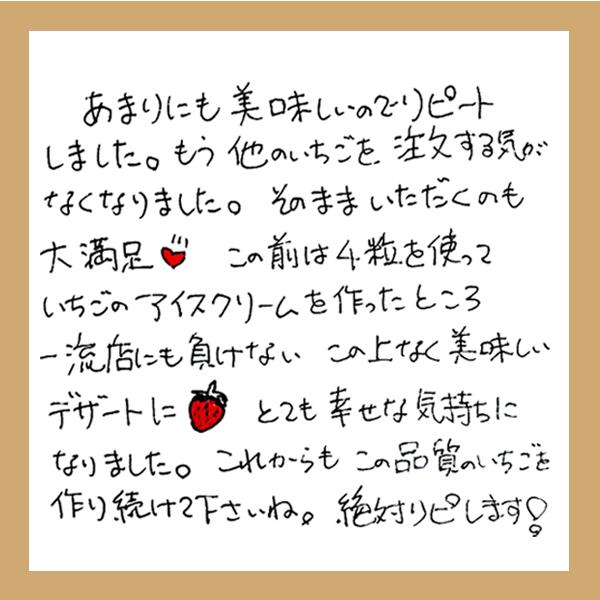 あまりにも美味しいのでリピート
しました。もう他のいちごを注文する気が
なくなりました。そのままいただくのも
大満足 この前は4粒を使って
いちごのアイスクリームを作ったところ
一流店にも負けない この上なく美味しい
デザートに とても幸せな気持ちに
なりました。これからもこの品質のいちごを
作り続けて下さいね。絶対リピします!